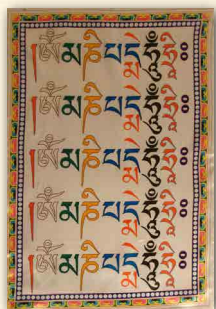 །ཨོཾ་མ་ཎི་པདྨེ་ཧཱུྃ་ཧྲཱིཿ
།ཨོཾ་མ་ཎི་པདྨེ་ཧཱུྃ་ཧྲཱིཿ
།ཨོཾ་མ་ཎི་པདྨེ་ཧཱུྃ་ཧྲཱིཿ
།ཨོཾ་མ་ཎི་པདྨེ་ཧཱུྃ་ཧྲཱིཿ